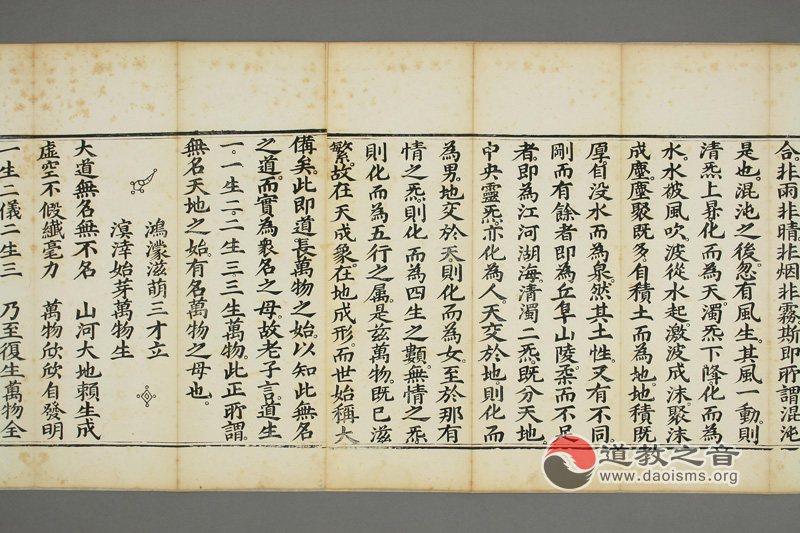 合。非雨非晴非烟非霧斯即所謂混沌
是也。混沌之後忽有風生。其風一動。則
清炁上昇化而為天。濁炁下降。化而為
水。水被風吹。波從水起。激波成沫。聚沫
成塵。塵聚既多。自積土而為地。地積既
厚。自没水而為泉。然其土性又有不同。
剛而有餘者即為丘阜山陵。柔而不足
者。即為江河湖海。清濁二炁。既分天地。
中央靈炁亦化為人。天交於地。則化而
為男。地交於天。則化而為女。至於那有
情之炁。則化而為四生之類。無情之炁
則化而為五行之属。是兹萬物。既已滋
繁。故在天成象。在地成形。而世始稱大
備矣。此即道長萬物之始。以知此無名
之道。而實為衆名之母。故老子言。道生
一。一生二。二生三。三生萬物。此正所謂。
無名天地之始。有名萬物之母也。
鴻濛滋萌三才立
溟涬始芽萬物生
大道無名無不名 山河大地賴生成
虛空不假纖毫力 萬物欣欣自發明
一生二儀二生三 乃至復生萬物全
道教之音
www.daoisms.org